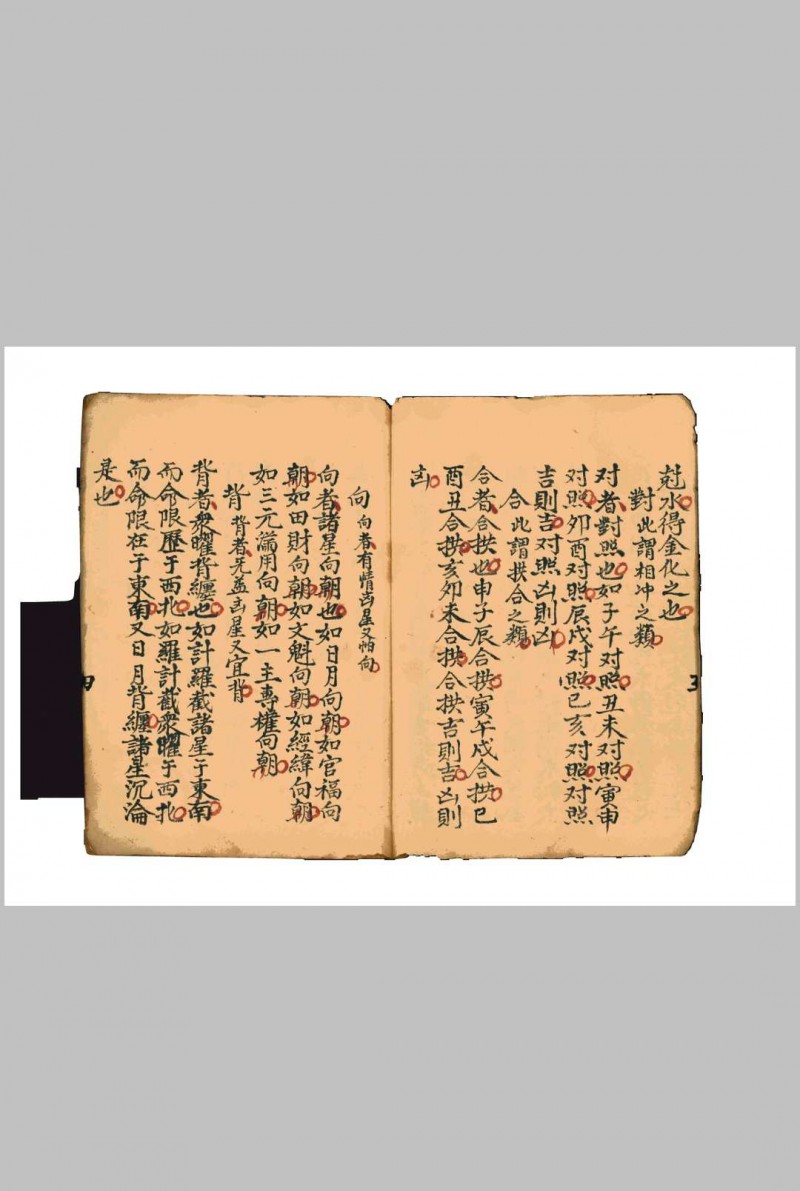 尅水得金化之也
對 此謂相冲之類
对者對照也如子午对照丑未对照寅申
对照卯酉对照辰戌对照巳亥对照对照
吉則吉对照凶則凶
合 此謂拱合之類
合者合拱也申子辰合拱寅午戌合拱巳
酉丑合拱亥卯未合拱合拱吉則吉凶則
凶
向 向者有情凶星又怕向
向者諸星向朝也如日月向朝如官福向
朝如田財向朝如文魁向朝如經緯向朝
如三元満用向朝如一主專權向朝
背 背者无益凶星又宜背
背者衆曜背纏也如計羅截諸星于東南
而命限歷于西北如羅計截衆曜于西北
而命限在于東南又日月背纏諸星沉淪
是也